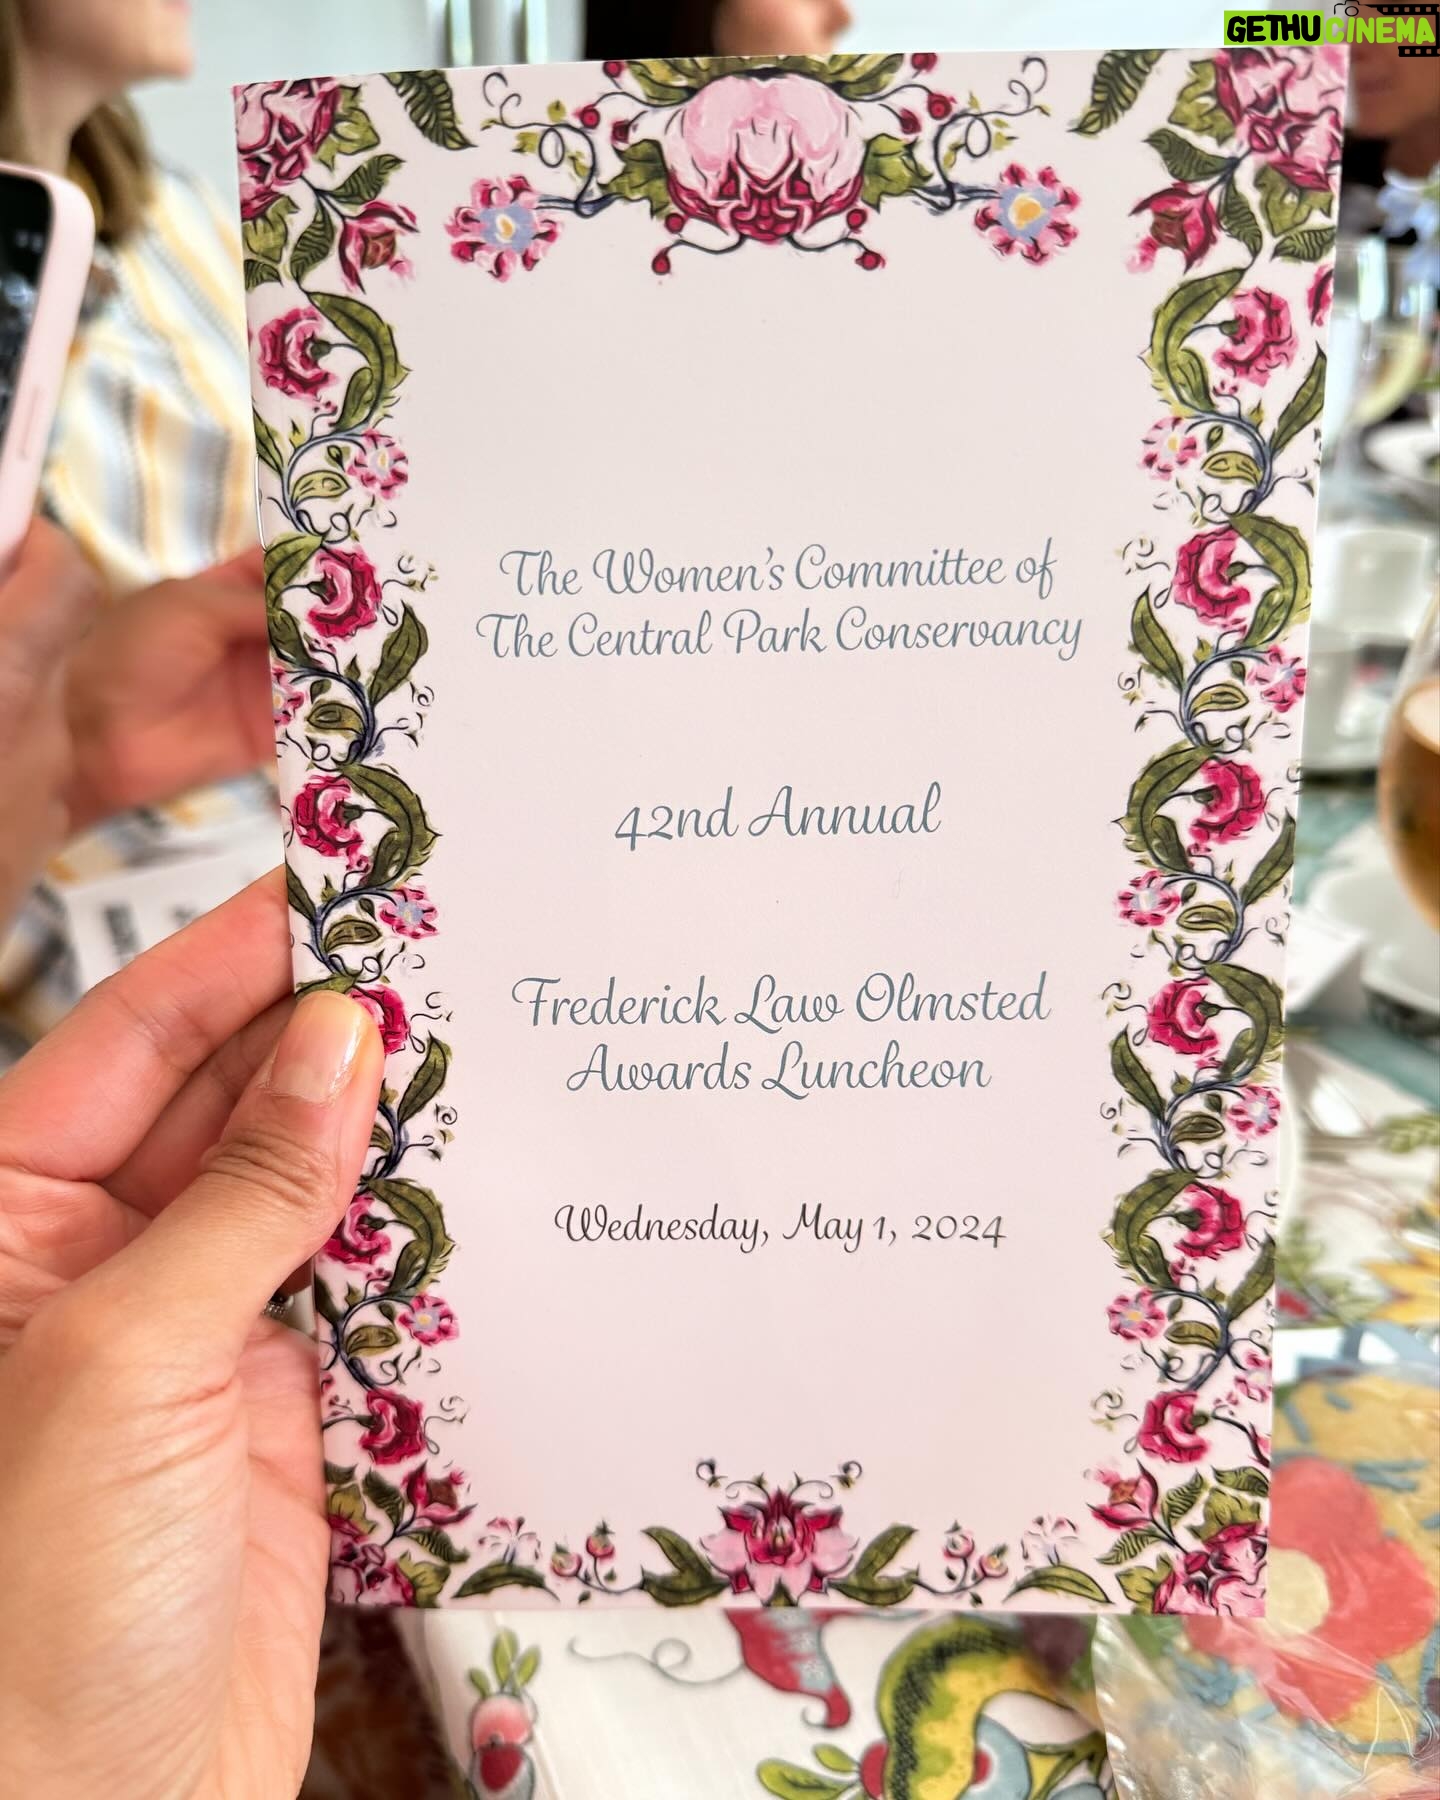 GETHUCINEMA
The Women's Committee of
The Central Park Conservancy
42nd Annual
Frederick Law Olmsted
Awards Luncheon
Wednesday, May 1, 2024